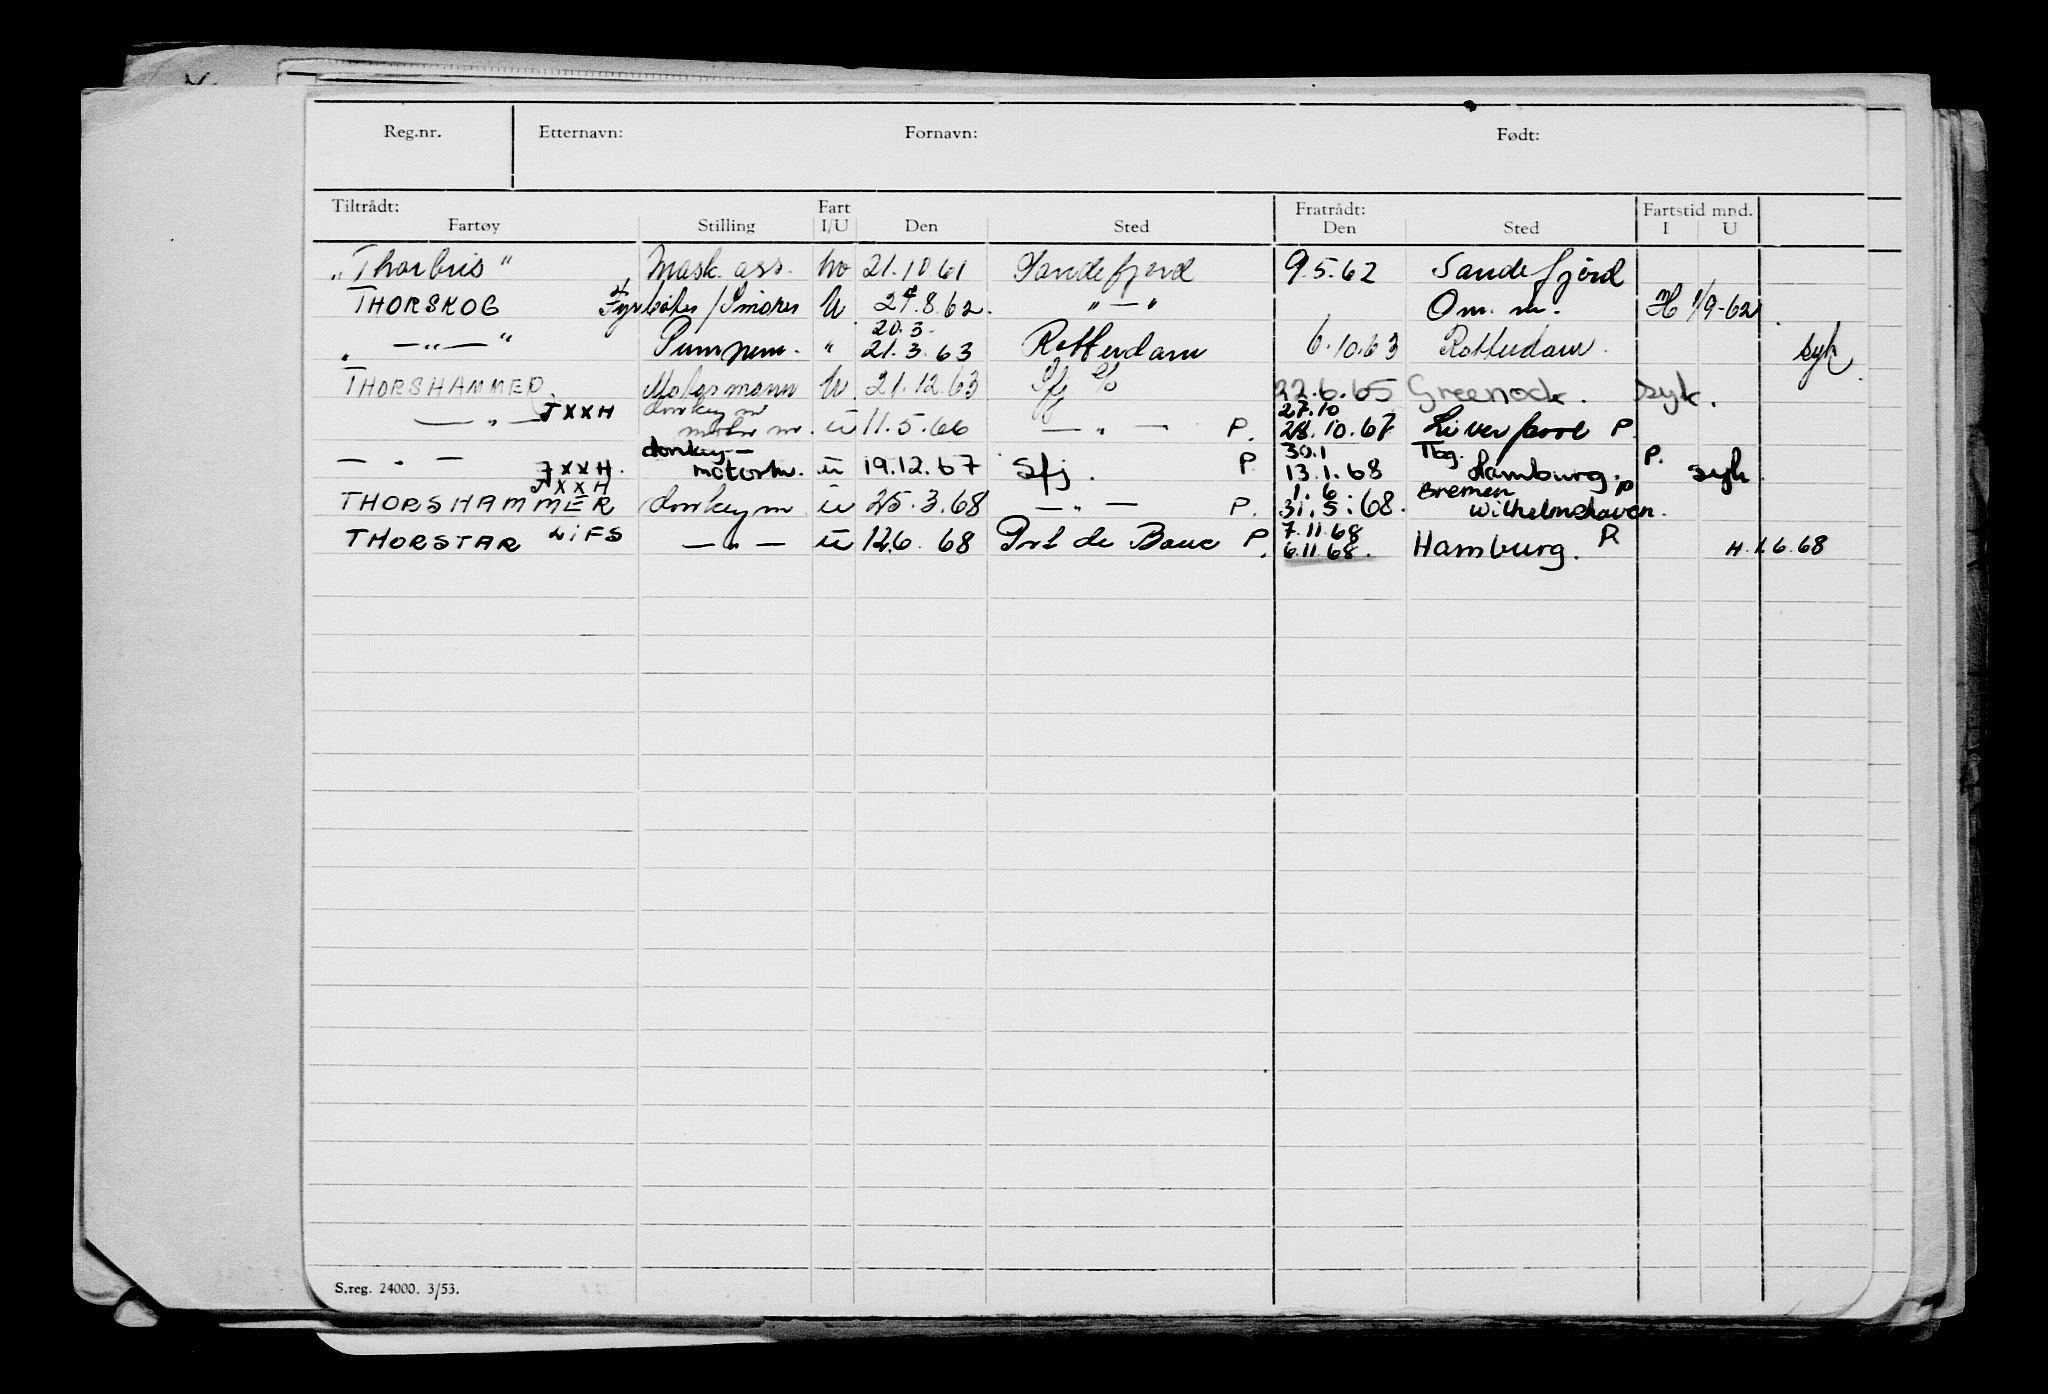 Reg.nr. Etternavn: Fornavn: Født:
Tiltrådt: Fart Fratrådt: Fartstid mnd.
Fartøy Stilling I/U Den Sted Den Sted I U
„Thorbris" Mask. ass. 21.10.61 Sandefjord 9.5.62 Sandefjord
THORSKOG Fyrbøter/Smører U 27.8.62. „ — „ Om. m. H 1/9-62
20.3
„ — „ — " Pumpem. " 21.3.63 Rotterdam 6.10.63 Rotterdam. syk
THORSHAMMER Motormann U 21.12.63 Sfj 22.6.65 Greenock. syk.
JXXH donkey m 27.10
— „ — motor m. ü 11.5.66 — „ — P. 28.10.67 Liverpool P
donkey- 30.1 Tbg. P.
— „ — JXXH. motorm. ü 19.12.67 Sfj. P 13.1.68 Hamburg. syk
JXXH 1.6 Bremen P
THORSHAMMER donkeym ü 25.3.68 — „ — P. 31.5.68. Wilhelmshaven.
LIFS 7.11.68
THORSTAR — „ — ü 12.6.68 Port de Bouc P. 6.11.68. Hamburg. P H. 1.6.68
S.reg. 24000. 3/53.